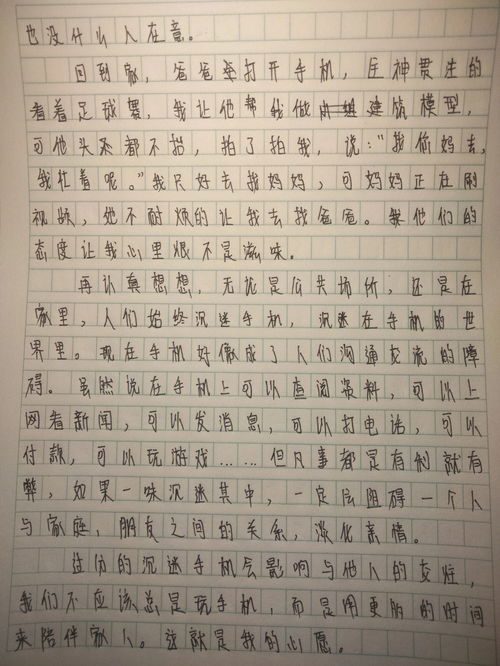 也没什么人在意。
回到家,爸爸打开手机,全神贯注的
看着足球赛,我让他帮我做建筑模型,
可他头还都不抬,拍了拍我,说:"找你妈去,
我忙着呢。"我只好去找妈妈,可妈妈正在刷
视频,她不耐烦的让我去找爸爸。他们的
态度让我心里很不是滋味。
再认真想想,无论是公共场所,还是在
家里,人们始终沉迷手机,沉迷在手机的世
界里。现在手机好像成了人们沟通交流的障
碍。虽然说在手机上可以查阅资料,可以上
网看新闻,可以发消息,可以打电话,可以
付款,可以玩游戏……但凡事都是有利就有
弊,如果一味沉迷其中,一定会阻碍一个人
与家庭,朋友之间的关系,淡化亲情。
过份的沉迷手机会影响与他人的交往,
我们不应该总是玩手机,而是用更多的时间
来陪伴家人。这就是我的心愿。